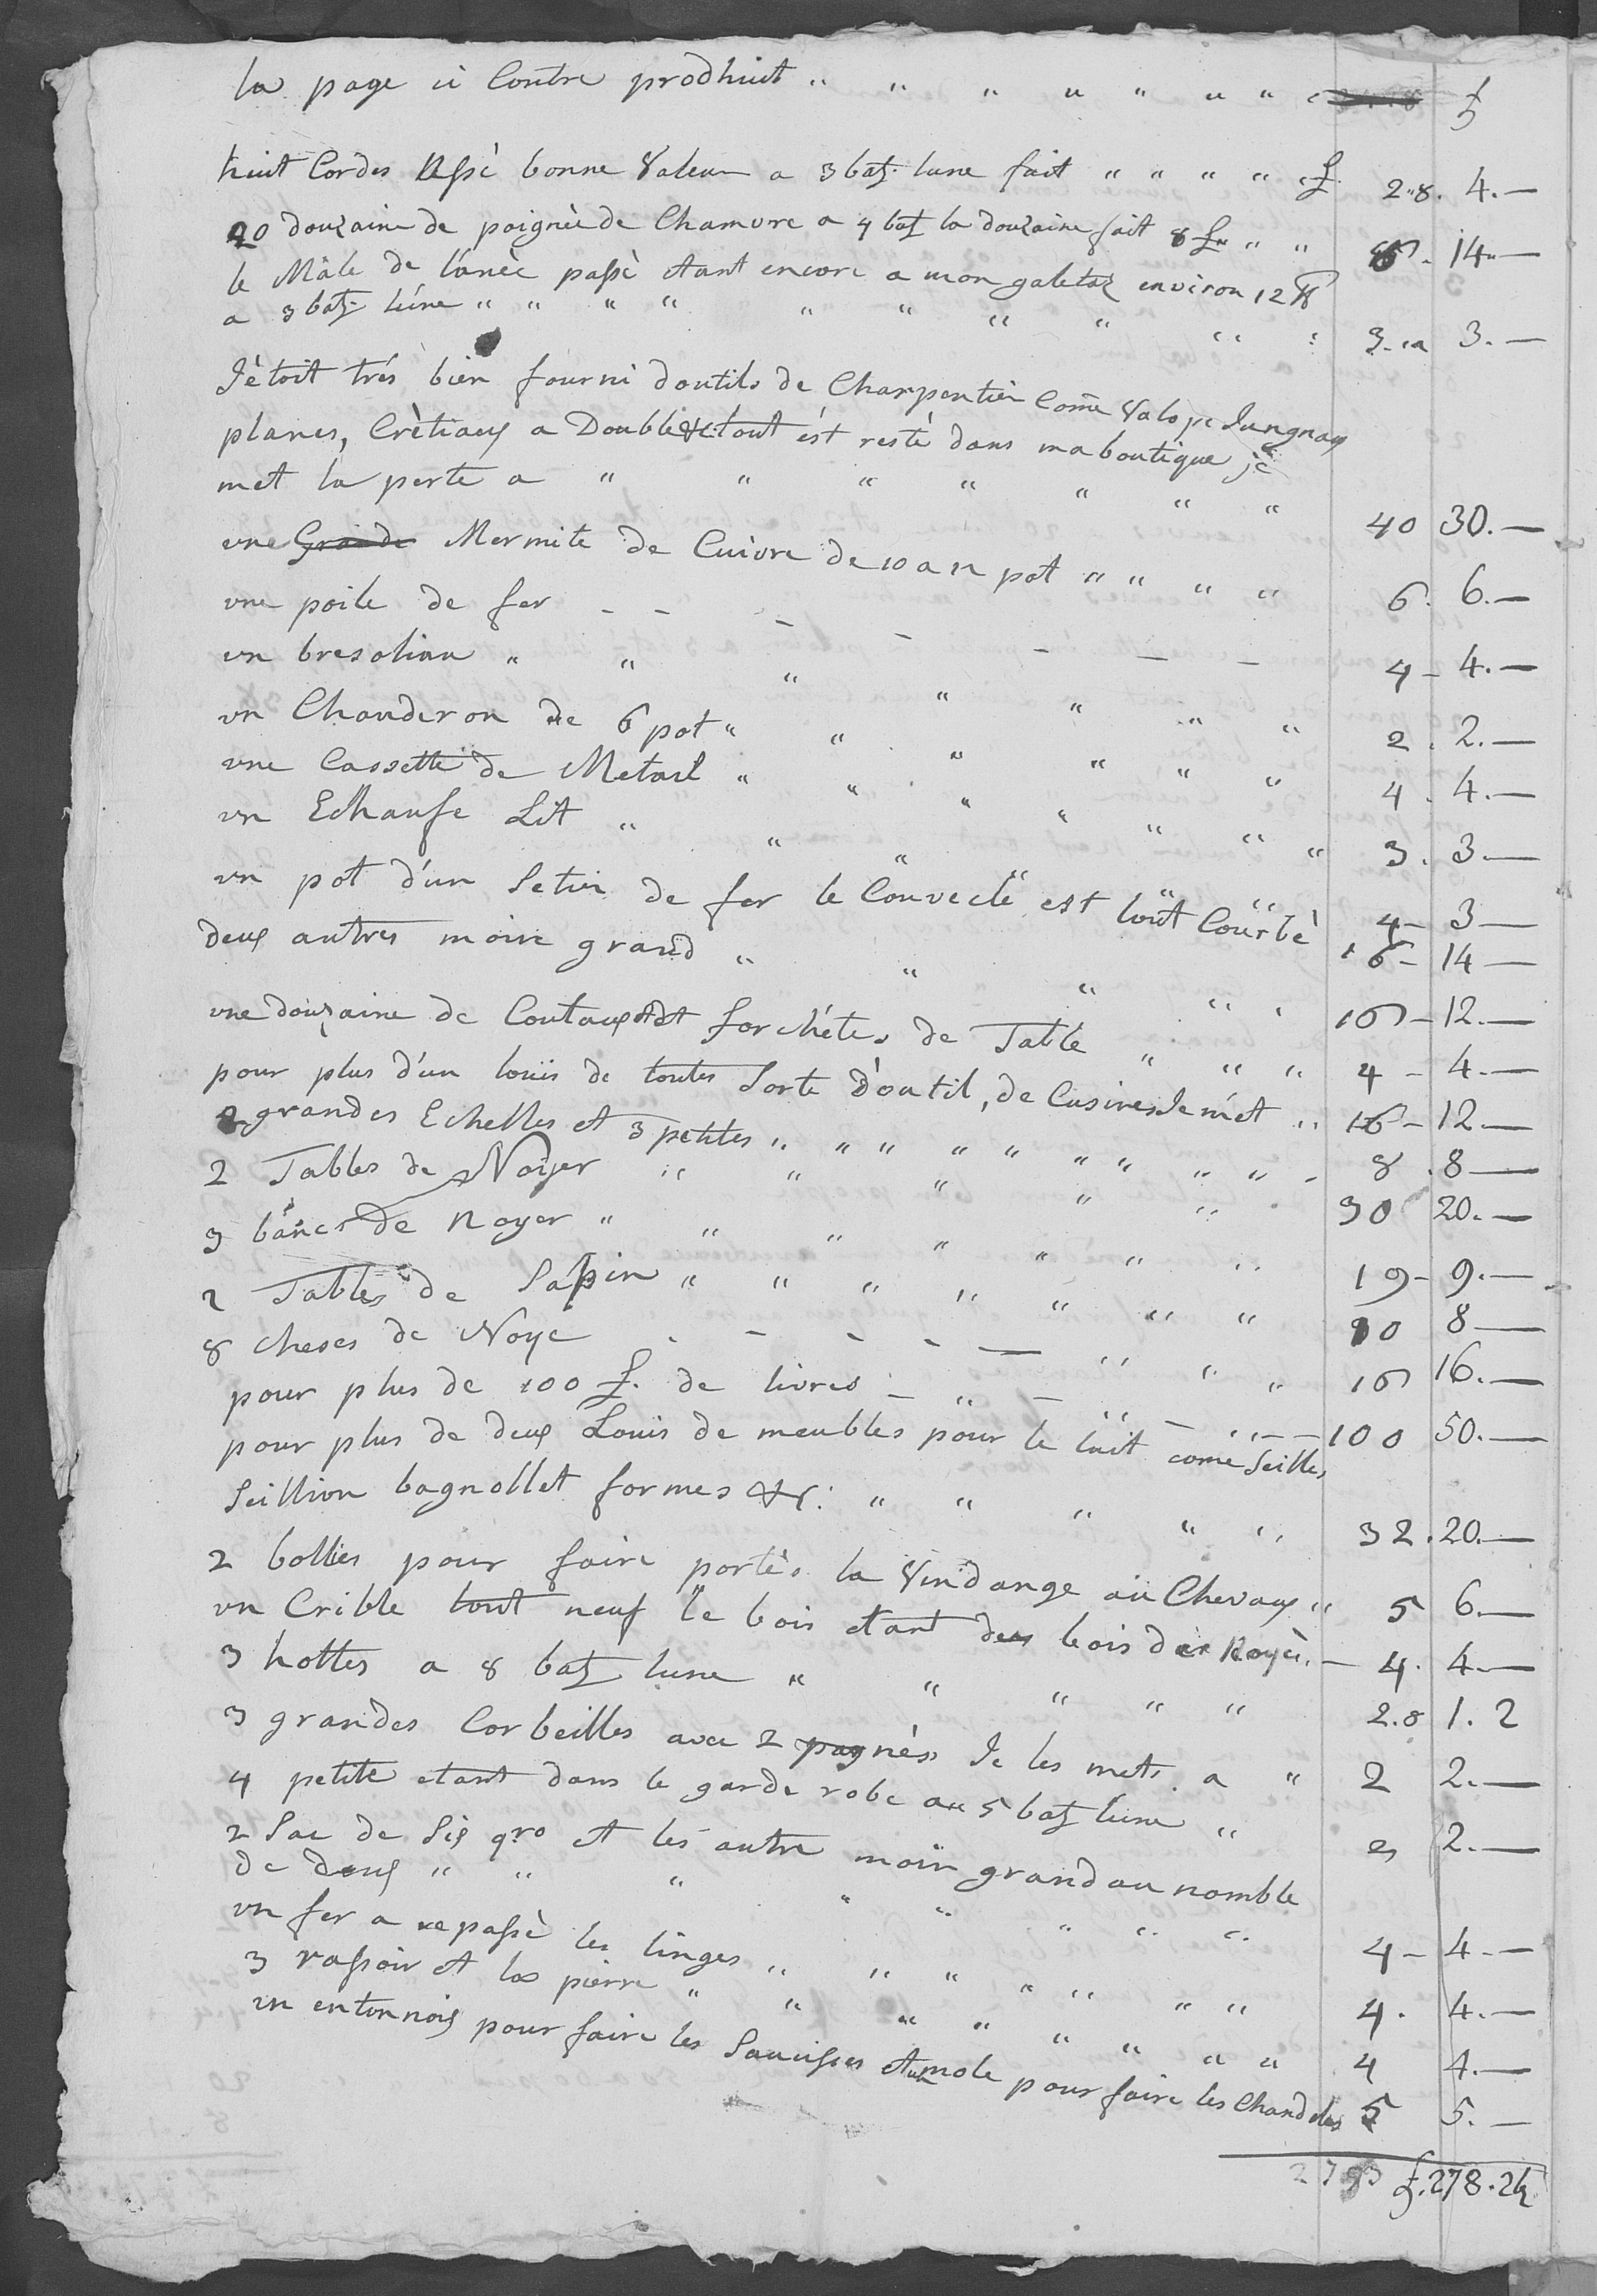 la page ci Contre prodhuit " " " " " " " " £
huit Cordes Assé bonne Valeur a 3 batz. lune fait " " " " £ 2"8. 4.—
20 douzaine de poignée de Chamvre a 4 batz la douzaine fait 8 £ " " 8. 14"—
le Mâle de l'anèe passè etant encore a mon galetaz environ 12 ℔
a 3 batz. lune " " " " " " " " " 3. 3.—
J'ètoit très bien fourni d'outils de Charpentier Come Valope
planes, Crètiaux a Double &c tout èst resté dans ma boutique jè
met la perte a " " " " " " " 40 30.—
une Grande Mermite de Cuivre de 10 a 12 pot " " " " 6. 6.—
une poile de fer - - - - - - - 4 - 4.—
un bresolian " " " " " " " 2. 2.—
un Chauderon de 6 pot " " " " " " 4. 4.—
une Cassette de Metail " " " " " " " 3. 3.—
un Echaufe Lit " " " " " 4- 3—
un pot d'un Setier de fer le Couvecle est tout Courbè 16- 14—
deux autres moin grand " " " " " 16- 12.—
une douzaine de Coutaux et forchètes de Table " " " 4 - 4.—
pour plus d'un louis de toutes Sorte d'outil, de Cusines Je met " 16- 12.—
2 grandes Echelles et 3 petites " " " " " " " " " 8. 8—
2 Tables de Noyer " " " " " 30 20.—
3 bancs de noyer " " " " " " " 19- 9.—
2 Tables de Sapin " " " " " " " 10 8—
8 cheses de Noye - - - - — " " " 16 16.—
pour plus de 100 £. de livres - " - " - " - - 100 50.—
pour plus de deux Louis de meubles pour le lait come Seilles
Seillion bagnollet formes &c: " " " " " 32. 20.—
2 bolles pour faire portès la Vindange au Chevaux " 5 6.—
un Crible tout neuf le bois etant des bois de Noyè. — 4. 4.—
3 hottes a 8 batz lune " " " " " 2.8 1. 2
3 grandes Corbeilles avec 2 pagnès Je les mets. a " 2 2.—
4 petite etant dans le garde robe au 5 batz lune " 2 2.—
2 Sac de Six qro et les autre moin grand au nomble
de deux " " " " " " " " 4 - 4.—
un fer a repassè les linges " " " " " " " 4. 4.—
3 rassoir et las pierre " " " " " " " " 4 4.—
un entonnoix pour faire les Saucisses et un mole pour faire les Chandeles 5 5.—
£.278.2